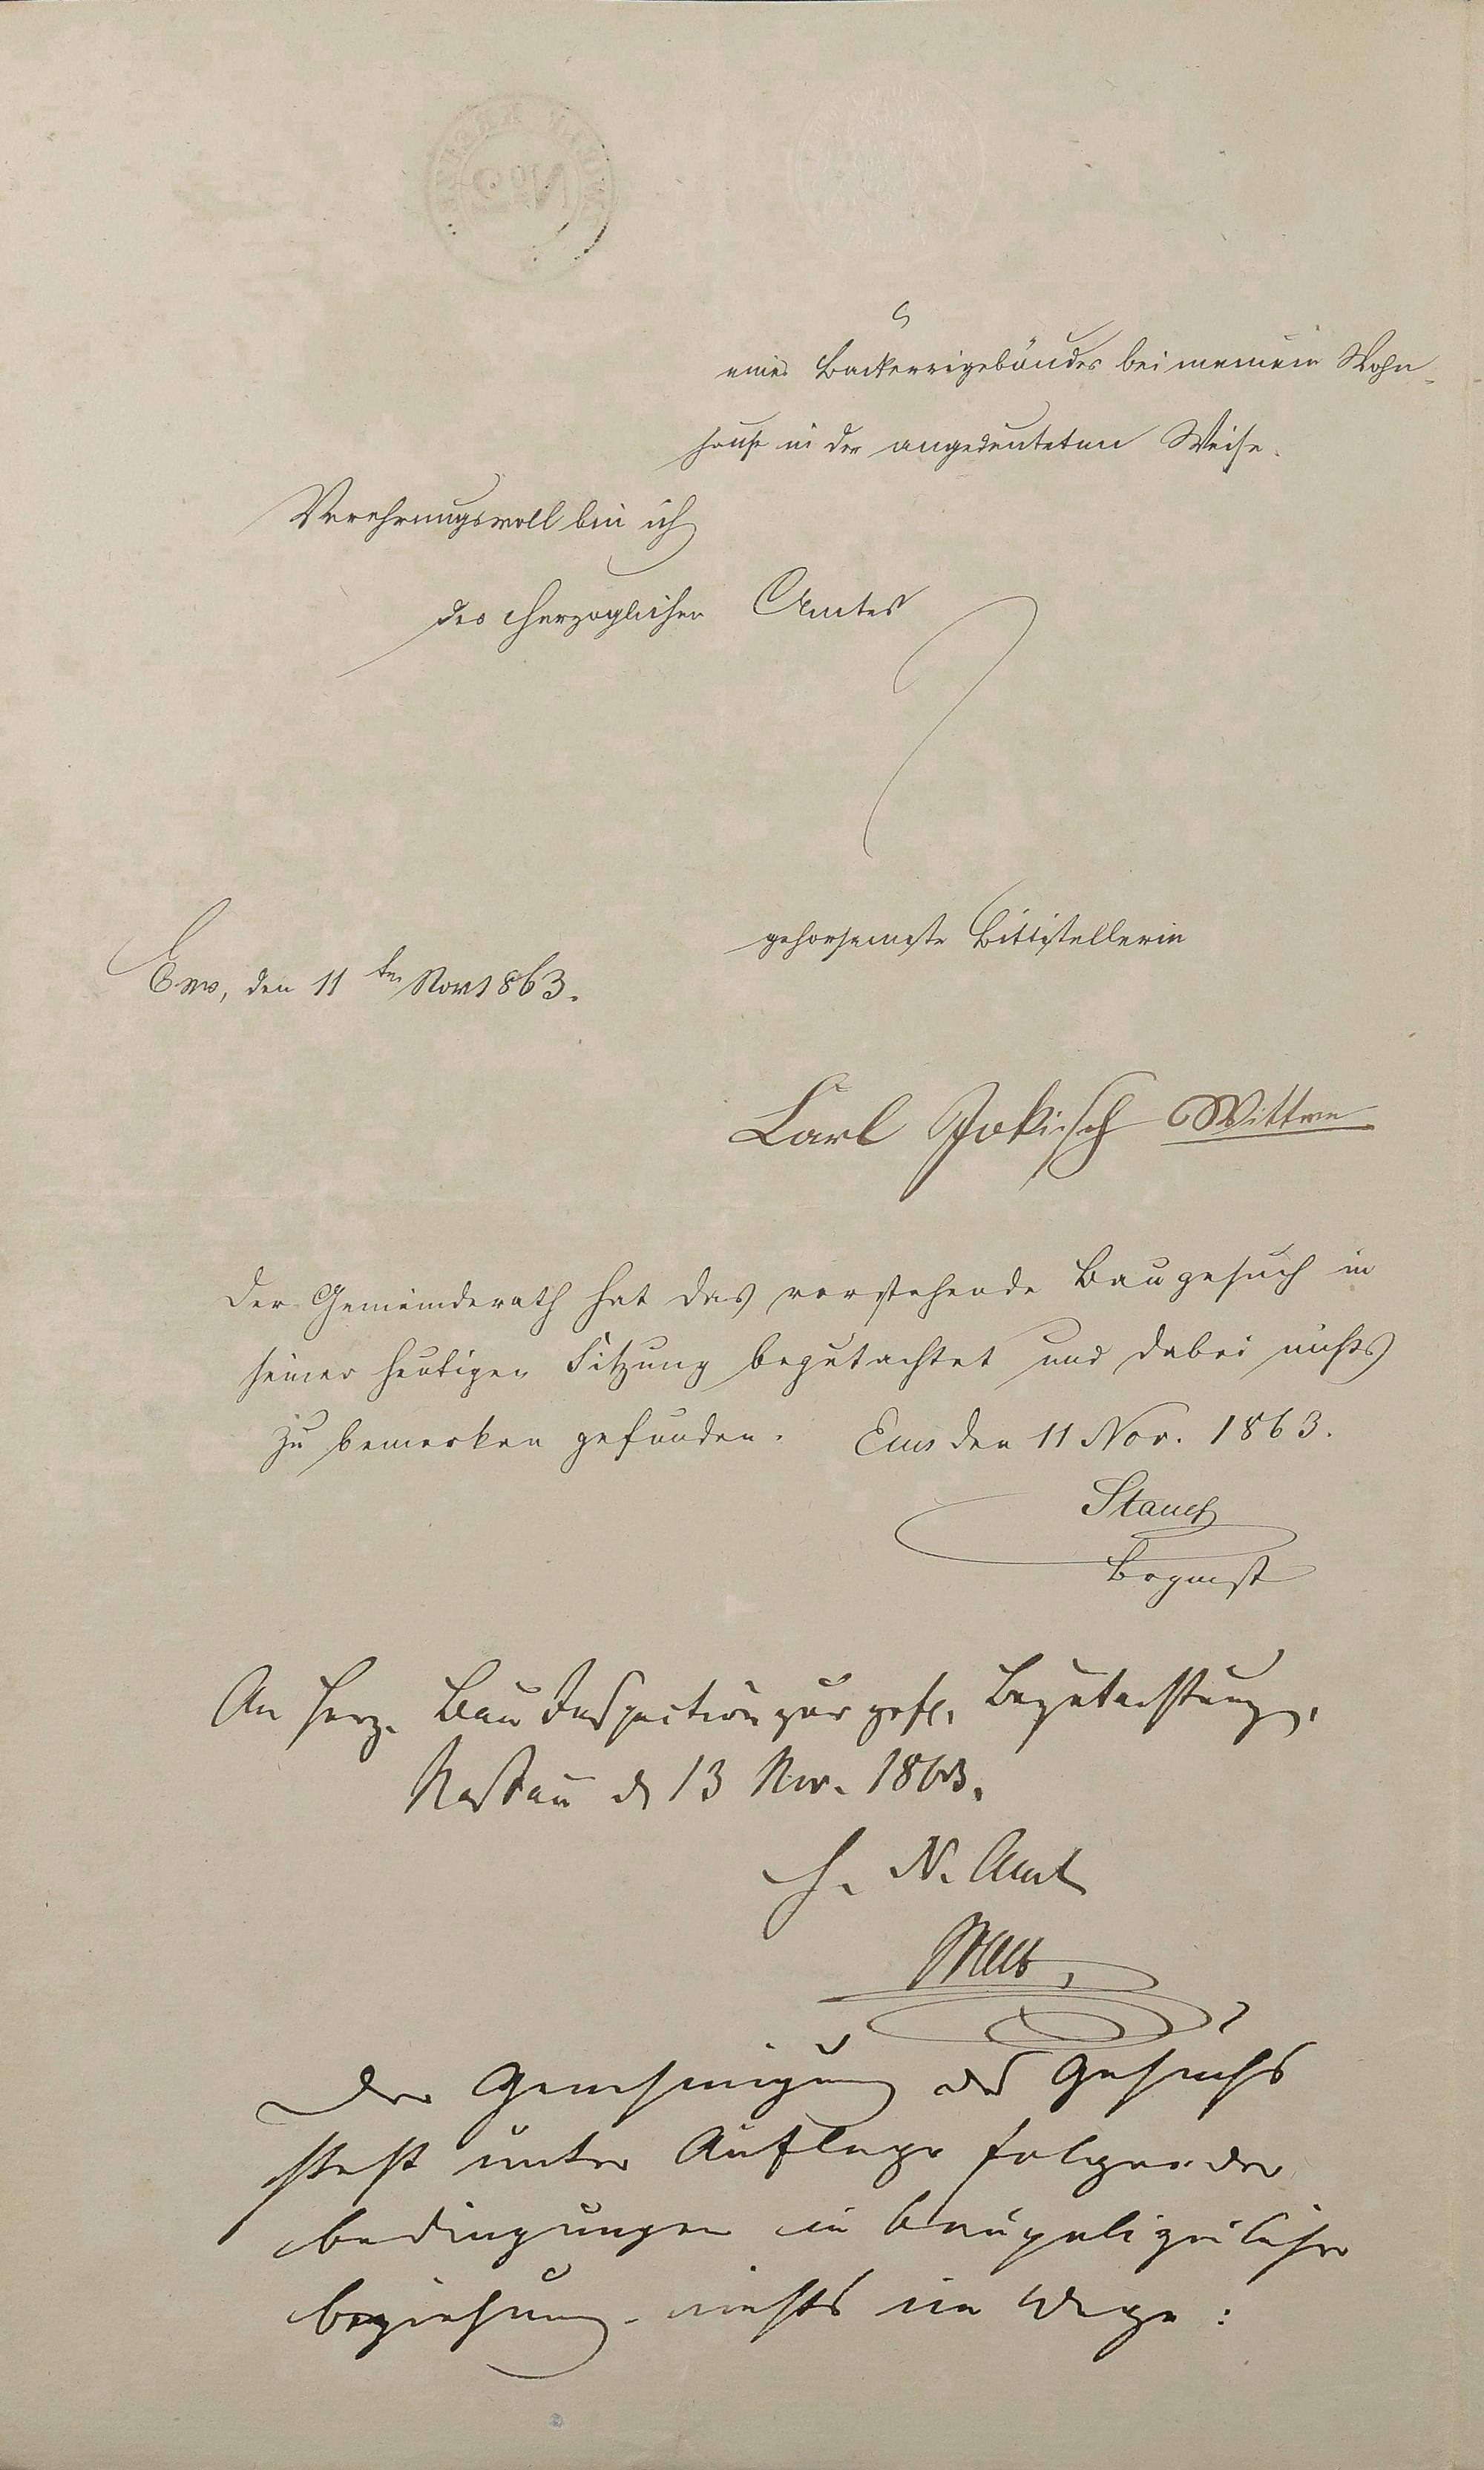 No 2
eines Backereigebäudes bei meinem Wohn-
hause in der angedeuteten Weise.
Verehrungsvoll bin ich
des Herzoglichen Amtes
gehorsamste Bittstellerin
Ems, den 11ten Nov 1863.
Carl Jokisch Wittwe
Der Gemeinderath hat das vorstehende Baugesuch in
seiner heutigen Sitzung begutachtet und dabei nichts
zu bemerken gefunden. Ems den 11 Nov. 1863.
An Herz. Bau Inspection zur gefl. Begutachtung.
Nassau d 13 Nov. 1863.
H. N. Amt
Der Genehmigung des Gesuchs
steht unter Auflage folgender
Bedingungen in baupolizeilicher
Beziehung nichts im Wege: